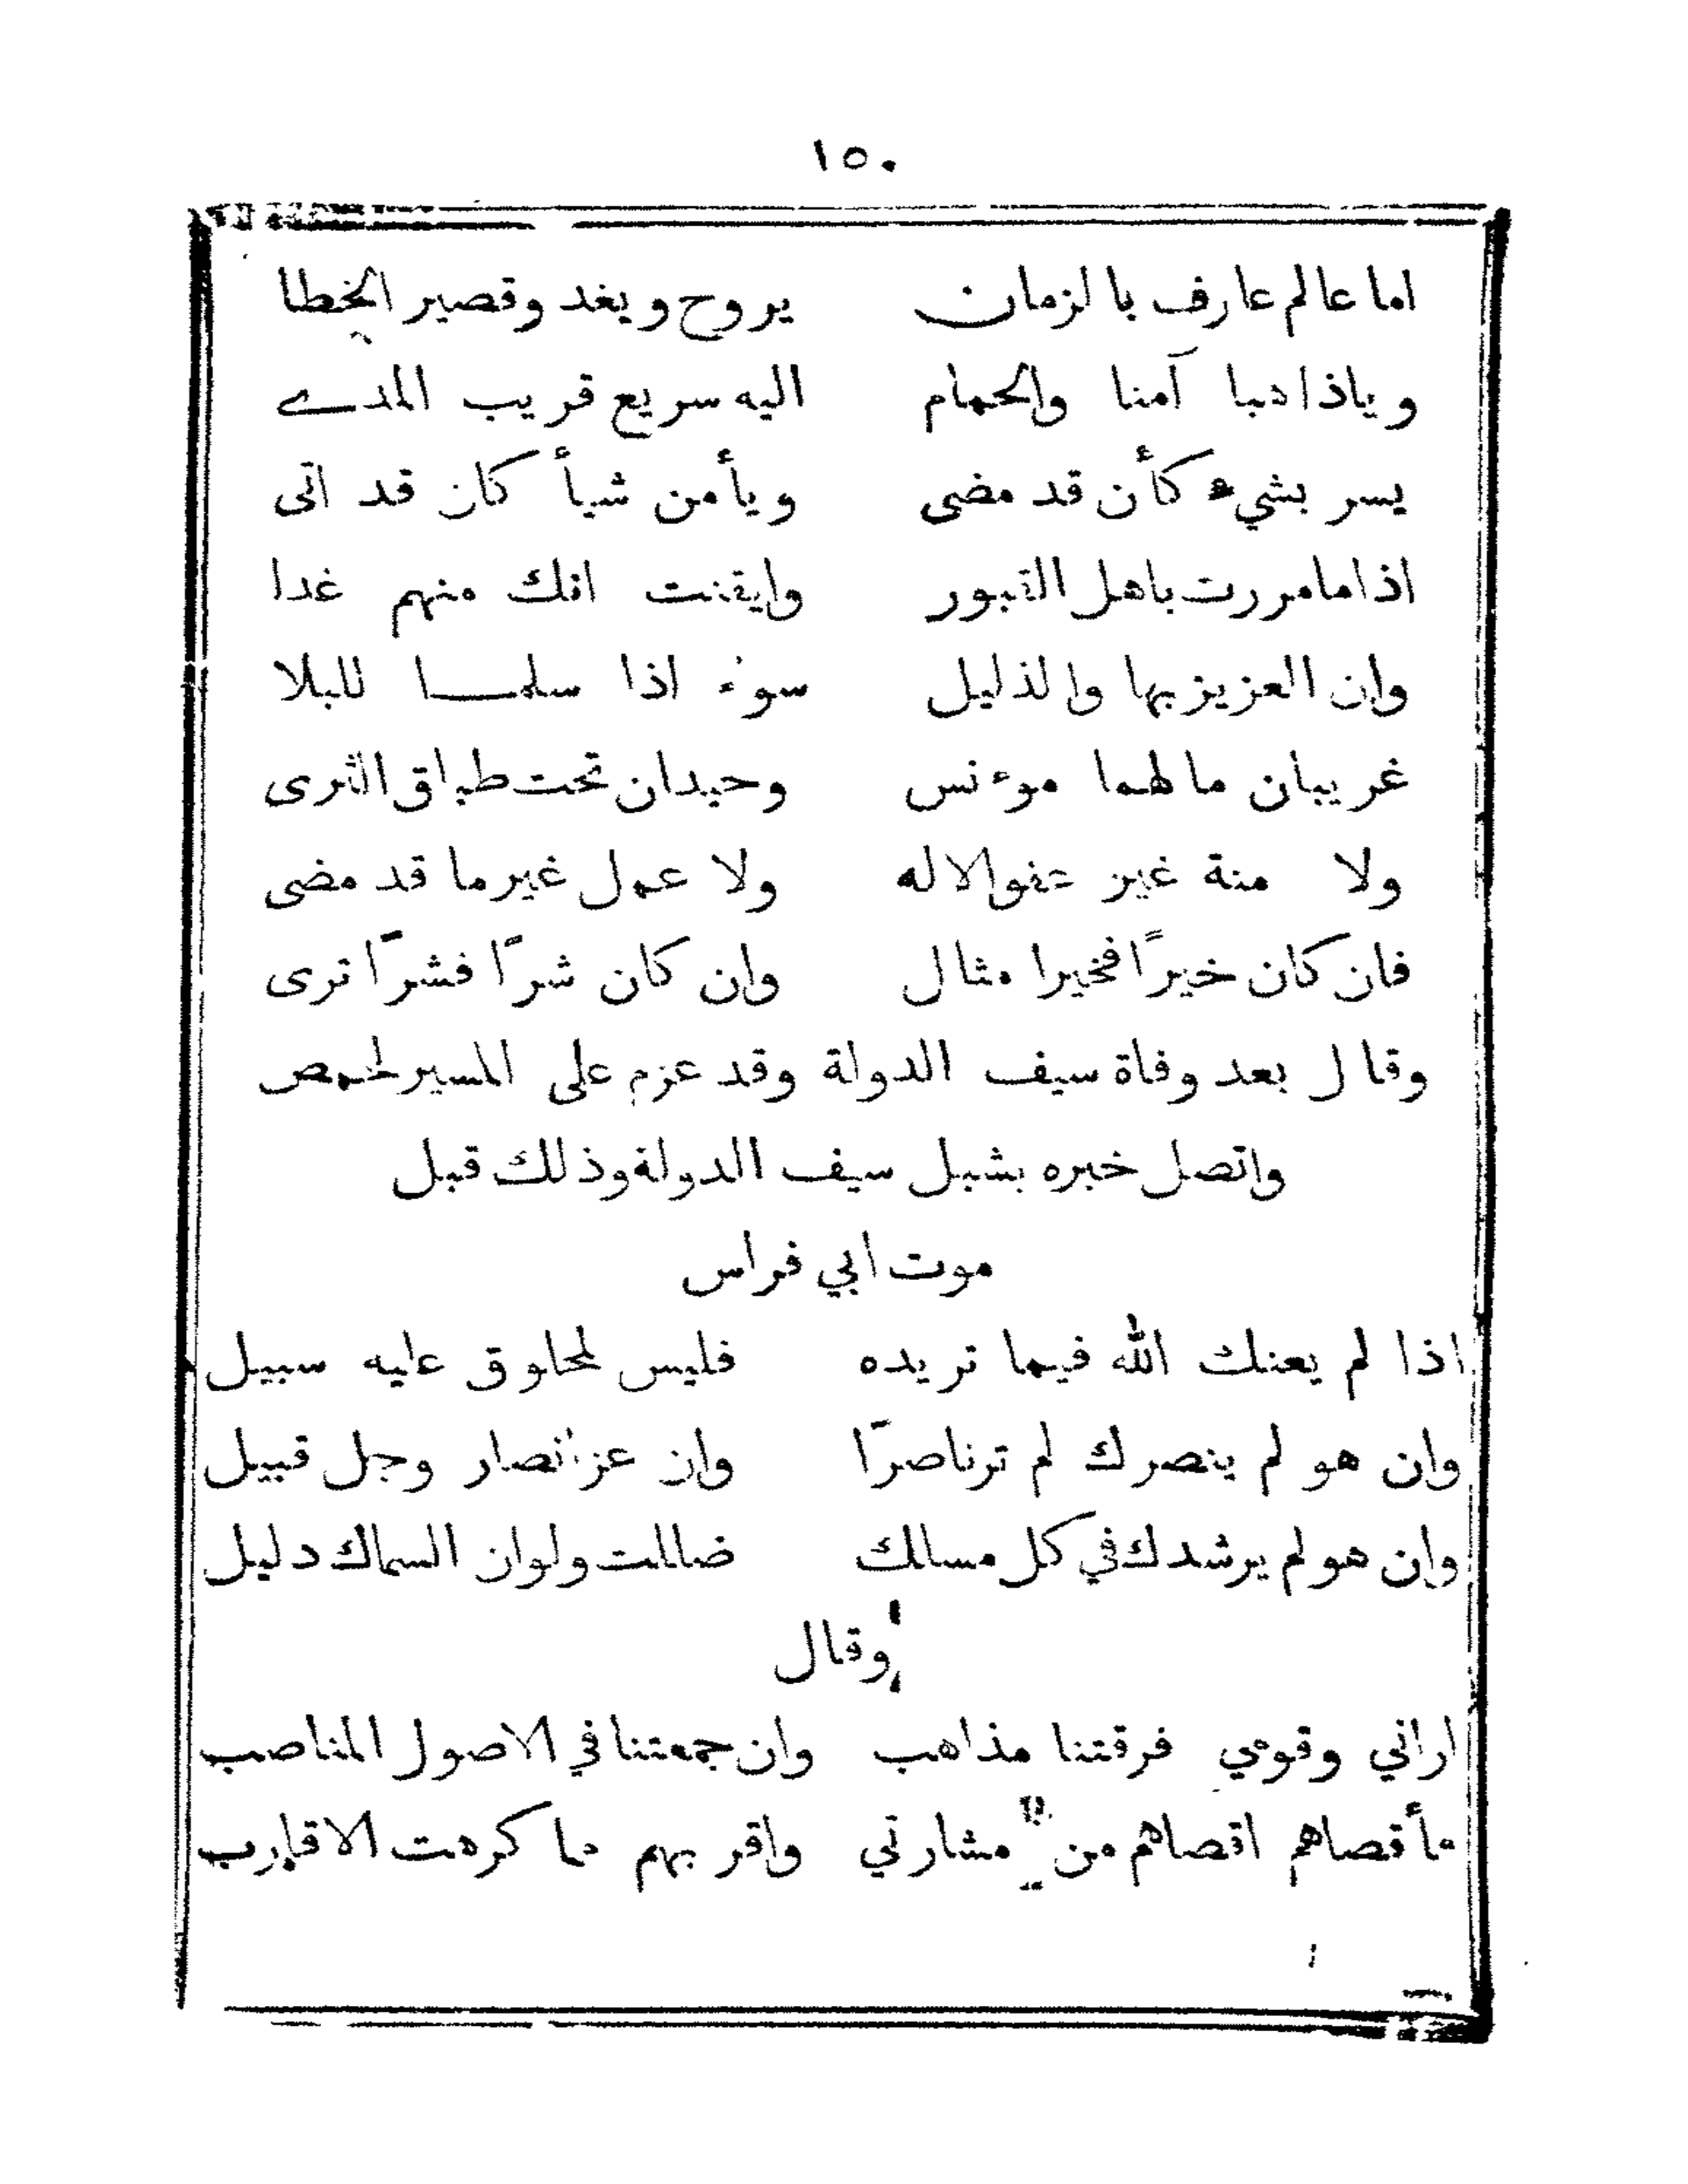 ١٥٠
اما عالم عارف بالزمان يروح ويغد وقصير الخطا
وياذاهبا آمنا والحمام اليه سريع قريب المدے
يسر بشيء كأن قد مضى ويأمن شيأ كان قد اتى
اذا ما مررت باهل القبور وايقنت انك منهم غدا
وان العزيز بها والذليل سوء اذا سلمــا للبلا
غريبان ما لهما موءنس وحيدان تحت طباق الثرى
ولا منة غير عفو الاله ولا عمل غير ما قد مضى
فان كان خيرًا فخيرا مثال وان كان شرًا فشرًا ترى
وقال بعد وفاة سيف الدولة وقد عزم على المسير لحمص
واتصل خبره بشبل سيف الدولة وذلك قبل
موت ابي فراس
اذا لم يعنك الله فيما تريده فليس لمخلوق عليه سبيل
وان هو لم ينصرك لم تر ناصرًا وان عز انصار وجل قبيل
وان هو لم يرشدك في كل مسالك ضاللت ولو ان السماك دليل
وقال
اراني وقومي فرقتنا مذاهب وان جمعتنا في الاصول المناصب
فأقصاهم اقصاهم من مشارتي واقربهم مما كرهت الاقارب